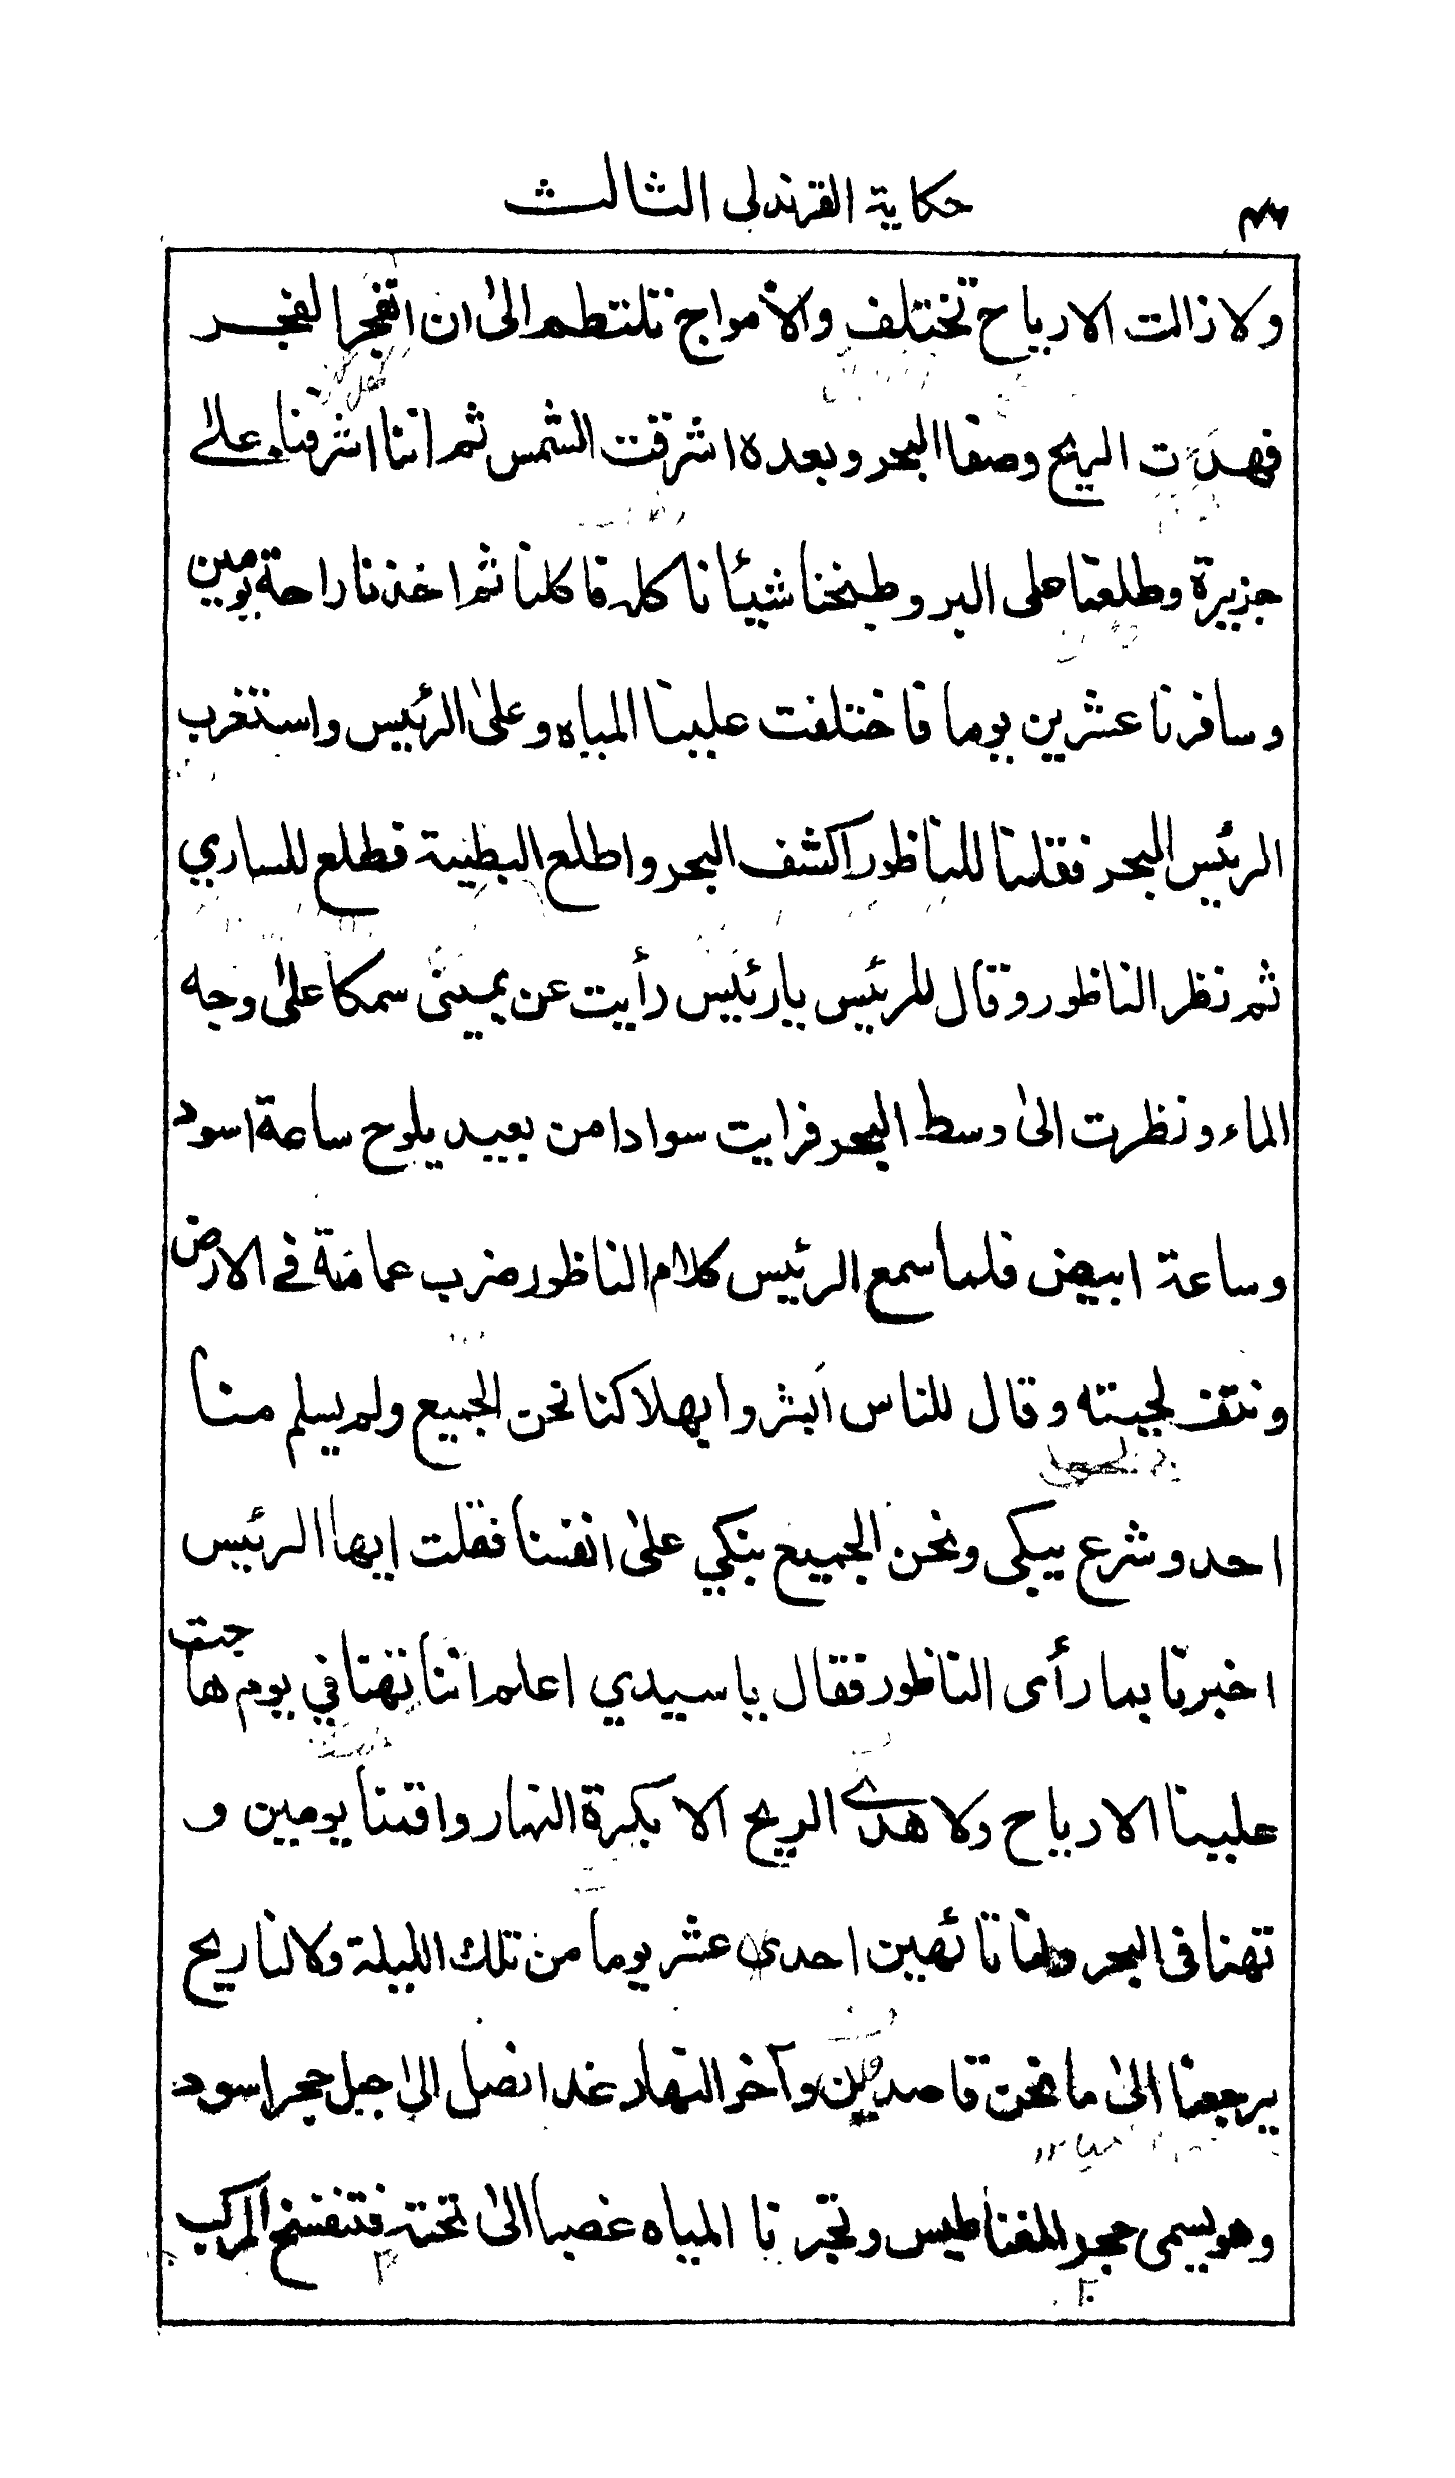 حكاية القرندلى الثالث
ولا زالت الارياح تختلف والأمواج تلتطم الىٰ ان انفجر الفجر
فهدت الريح وصفا البحر وبعده اشرقت الشمس ثم اننا اشرفنا علىٰ
جزيرة وطلعنا على البر وطبخنا شيأ ناكله فاكلنا ثم اخذنا راحة يومين
وسافرنا عشرين يوما فاختلفت علينا المياه وعلىٰ الرئيس واستغرب
الرئيس البحر فقلنا للناظور اكشف البحر واطلع البطنية فطلع للساري
ثم نظر الناظور وقال للرئيس يا رئيس رأيت عن يمينى سمكا علىٰ وجه
الماء ونظرت الىٰ وسط البحر فرايت سوادا من بعيد يلوح ساعة اسود
وساعة ابيض فلما سمع الرئيس كلام الناظور ضرب عمامته في الارض
ونتف لحيته وقال للناس ابشروا بهلاكنا نحن الجميع ولم يسلم منا
احد وشرع يبكى ونحن الجميع نبكي علىٰ انفسنا فقلت ايها الرئيس
اخبرنا بما رأى الناظور فقال يا سيدي اعلم اننا تهنا في يوم هاجت
علينا الارياح ولا هدى الريح الا بكرة النهار واقمنا يومين و
تهنا فى البحر ولنا تائهين احدى عشر يوما من تلك الليلة ولا لنا ريح
يرجعنا الىٰ ما نحن قاصدين وآخر النهار غدا نصل الىٰ جبل حجر اسود
وهو يسمى حجر المغناطيس وتجرنا المياه غصبا الىٰ تحته فتنفسخ المركب